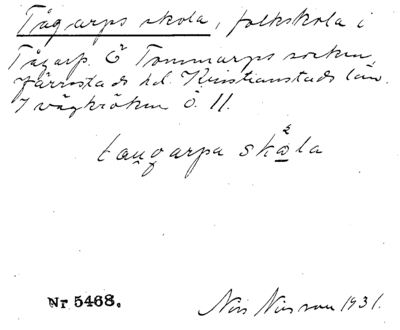 Tågarps skola, folkskola i
Tågarp. Ö Tommarps socken,
Järrestads hd. Kristianstads län.
I vägkröken ö. 11.
taugarpa skåla
Nr 5468.
Nils Nilsson 1931.